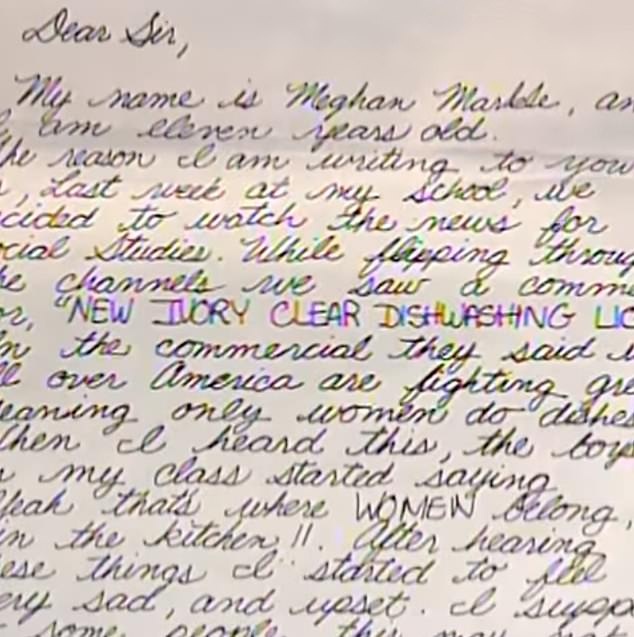 Dear Sir,
My name is Meghan Markle, an
I am eleven years old.
The reason I am writing to you
is, Last week at my school, we
cided to watch the news for
ocial Studies. While flipping throug
he channels we saw a comme
or, "NEW IVORY CLEAR DISHWASHING LIC
In the commercial they said
ll over America are fighting gre
eaning only women do dishes
hen I heard this, the boys
my class started saying
Yeah that's where WOMEN belong,
in the kitchen!!. After hearing
ese things I started to feel
ery sad, and upset. I suppo
some people, this may